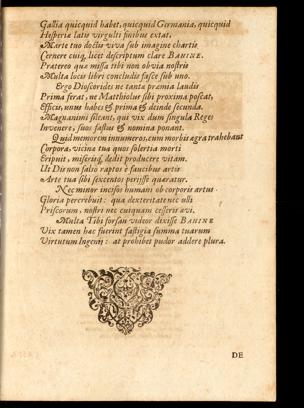 Gallia quicquid habet, quicquid Germania, quicquid
Hesperia latis virgulti finibus extat,
Marte tuo doctis viva sub imagine chartis
Cernere cuiq; licet descriptum clare BAUINE.
Prætereo quæ missa tibi non obvia nostris
Multa locis libri concludis fasce sub uno.
Ergo Dioscorides ne tanta præmia laudis
Prima ferat, ne Matthiolus sibi proxima poscat,
Efficis, unus habes & prima & deinde secunda.
Magnanimi sileant, qui vix dum singula Reges
Invenere, suos fastus & nomina ponant.
Quid memorem innumeros, cum morbis ægra trahebant
Corpora, vicina tua quos solertia morti
Eripuit, miserisq, dedit producere vitam.
Ut Diis non falso raptos è faucibus artis
Arte tua sibi sexcentos periisse quærantur.
Nec minor incisos humani ob corporis artus
Gloria percrebuit: qua dexteritate nec ulli
Priscorum, nostri nec cuiquam cesseris ævi.
Multa Tibi forsan videor dixisse BAUINE
Vix tamen hac fuerint fastigia summa tuarum
Virtutum Ingenii: at prohibet pudor addere plura.
DE